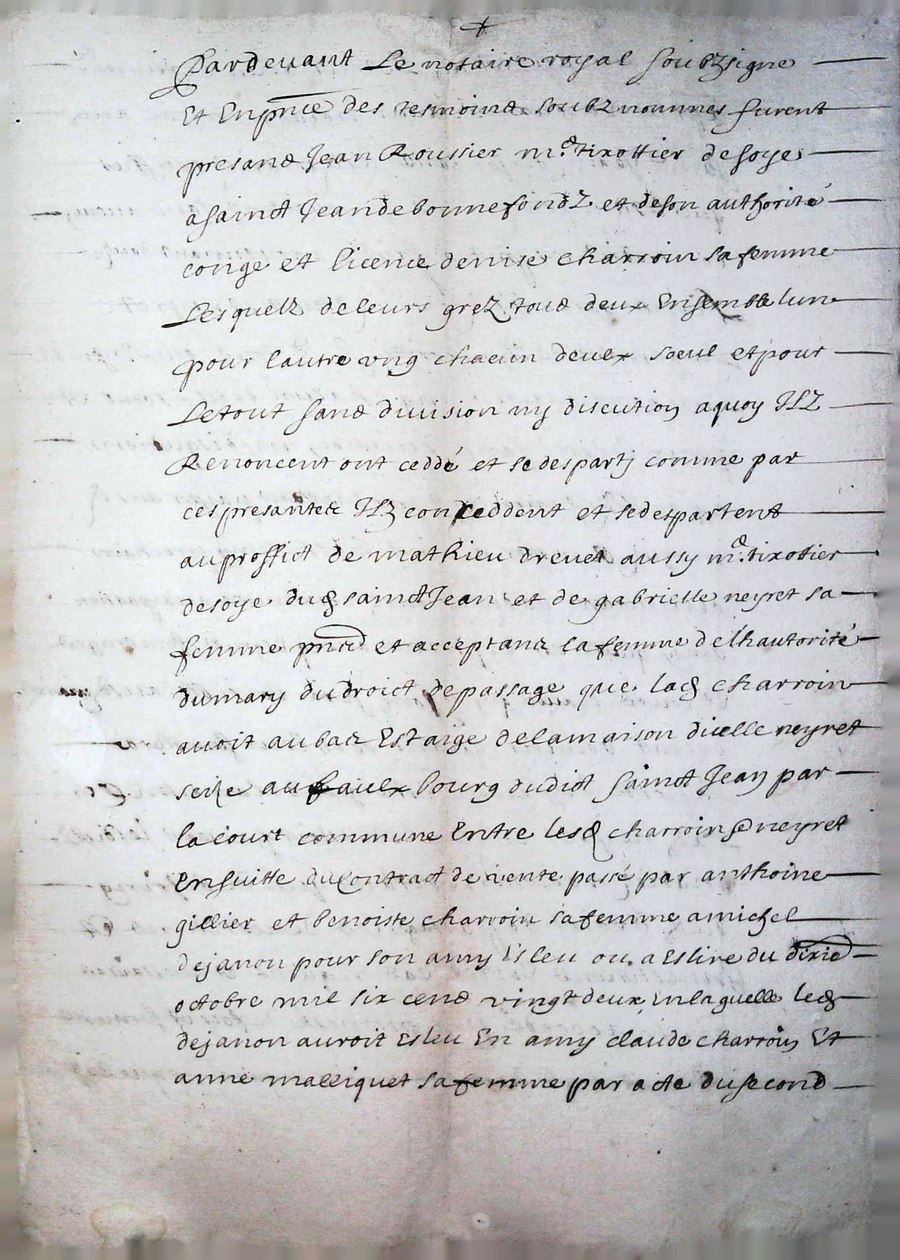 Pardevant Le notaire royal soubzsigne
Et En pnce des tesmoins soubz nommes furent
presans Jean Roussier mr. tixottier de soye
a sainct Jean de bonnefondz et de son authorité
conge et licence denise charroin sa femme
Lesquelz de leurs grez tous deux Ensemble lun
pour lautre ung chacun deulx soeul et pour
Le tout sans division ny discution a quoy Ilz
Renoncent ont ceddé et se desparti comme par
ces presantes Ilz con ceddent et se despartent
au proffict de mathieu drevet aussy mr. tixotier
de soye dud sainct Jean et de gabrielle neyret sa
femme pnts et acceptans la femme de lhautorité
du mary du droict de passage que lad charroin
avoit au bas Estaige de la maison dicelle neyret
seize au faulx bourg dudict sainct Jean par
la court commune Entre lesd charroin & neyret
Ensuitte du contract de vente passé par anthoine
gillier et benoiste charroin sa femme a michel
dejanon pour son amy Esleu ou a Eslire du dixie
octobre mil six cens vingt deux, En laquelle led
dejanon auroit Esleu En amy claude charroin Et
anne malliquet sa femme par acte du second